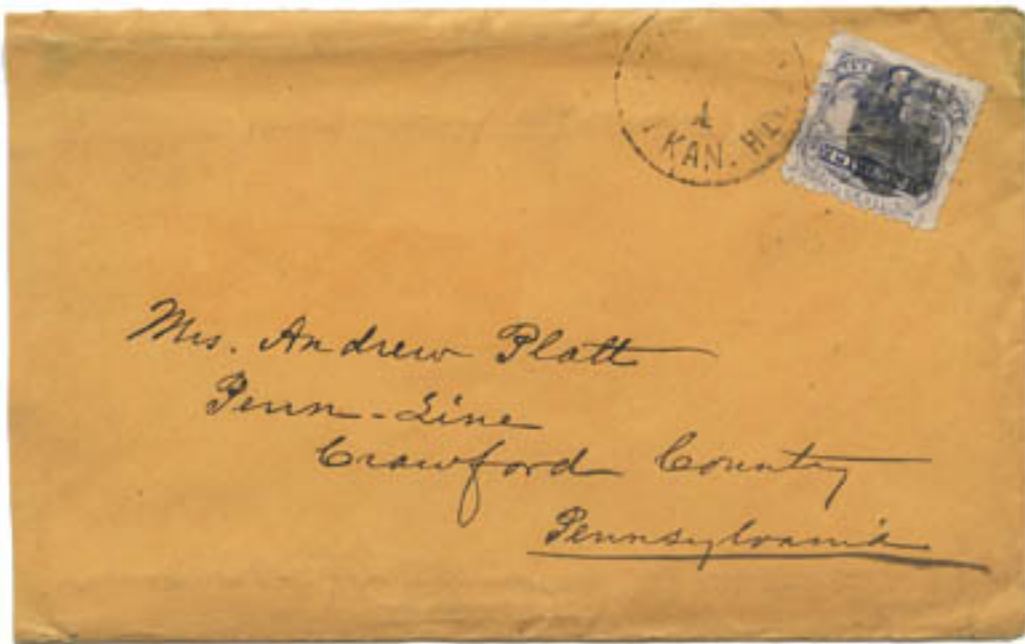 KAN.
Mrs. Andrew Platt
Penn-Line
Crawford County
Pennsylvania